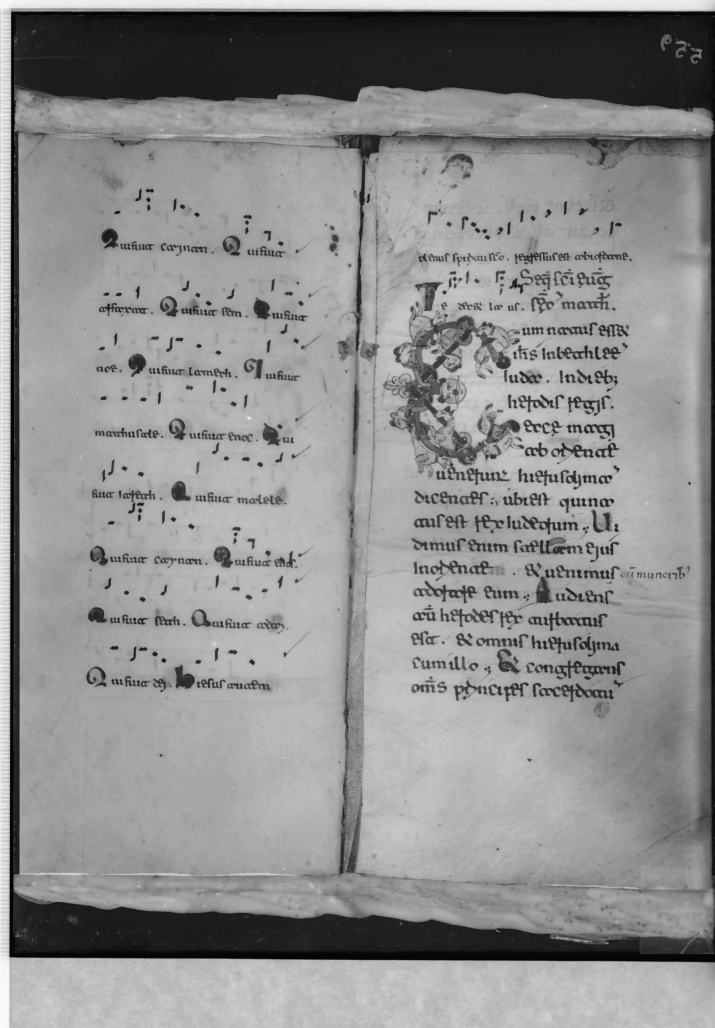 Qui fuit caynan. Qui fuit
arfaxat. Qui fuit sem. Qui fuit
noe. Qui fuit lamech. Qui fuit
mathusale. Qui fuit enoc. Qui
fuit iareth. Qui fuit malele.
Qui fuit caynan. Qui fuit enos.
Qui fuit seth. Qui fuit adam.
Qui fuit dei. hiesus autem
plenus spiritu sco. regressus est ab iordane.
Seq̄ sc̄i euḡ
Te decet laus. scđo math.
Cum natus esset
ih̄s In bethlee
Iudae. In dieb;
herodis regis.
Ecce magi
ab oriente
uenerunt hierusolima
dicentes; ubi est qui na
tus est rex Iudeorum; Ui
dimus enim stellam ejus
In oriente. & uenimus cū munerib'
adorare eum; Audiens
aū herodes rex turbatus
est. & omnis hierusolima
cum illo; Et congregans
om̄s principes sacerdotū
559